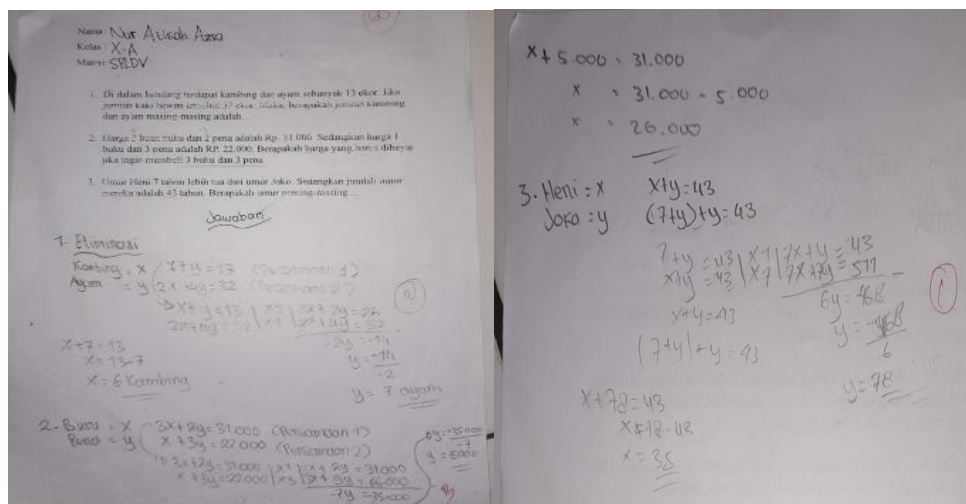 Nama : Nur Azizah Azra
Kelas : X-A
Materi : SPLDV
1. Di dalam kandang terdapat kambing dan ayam sebanyak 13 ekor. Jika
jumlah kaki hewan tersebut 32 ekor. Maka, berapakah jumlah kambing
dan ayam masing-masing adalah...
2. Harga 3 buah buku dan 2 pena adalah Rp. 31.000. Sedangkan harga 1
buku dan 3 pena adalah RP. 22.000. Berapakah harga yang harus dibayar
jika ingin membeli 3 buku dan 3 pena
3. Umur Heni 7 tahun lebih tua dari umur Joko. Sedangkan jumlah umur
mereka adalah 43 tahun. Berapakah umur masing-masing...
Jawaban
1. Eliminasi
Kambing = x x+y=13 (Persamaan 1)
Ayam = y 2x+4y=32 (Persamaan 2)
x+y=13 | x2 | 2x+2y=26
2x+4y=32 | x1 | 2x+4y=32
-2y=-14
y=-14
-2
y= 7 ayam
x+7=13
x=13-7
x=6 kambing
2. Buku = x 3x+2y=31.000 (Persamaan 1)
Pena = y x+3y=22.000 (Persamaan 2)
3x+2y=31.000 | x1 2y=31000
x+3y=22.000 | x3 9y=66.000
-7y=-35.000
-35.000
-7
y=5000
x+5.000 = 31.000
x = 31.000 - 5.000
x = 26.000
3. Heni : x x+y=43
Joko : y (7+y)+y=43
7+y=43 | x1 | 7x+y=43
x+y=43 | x7 | 7x+7y=511
6y=468
x+y=43
y=-468
6
(7+y)+y=43
y=78
x+78=43
x=78-43
x=35